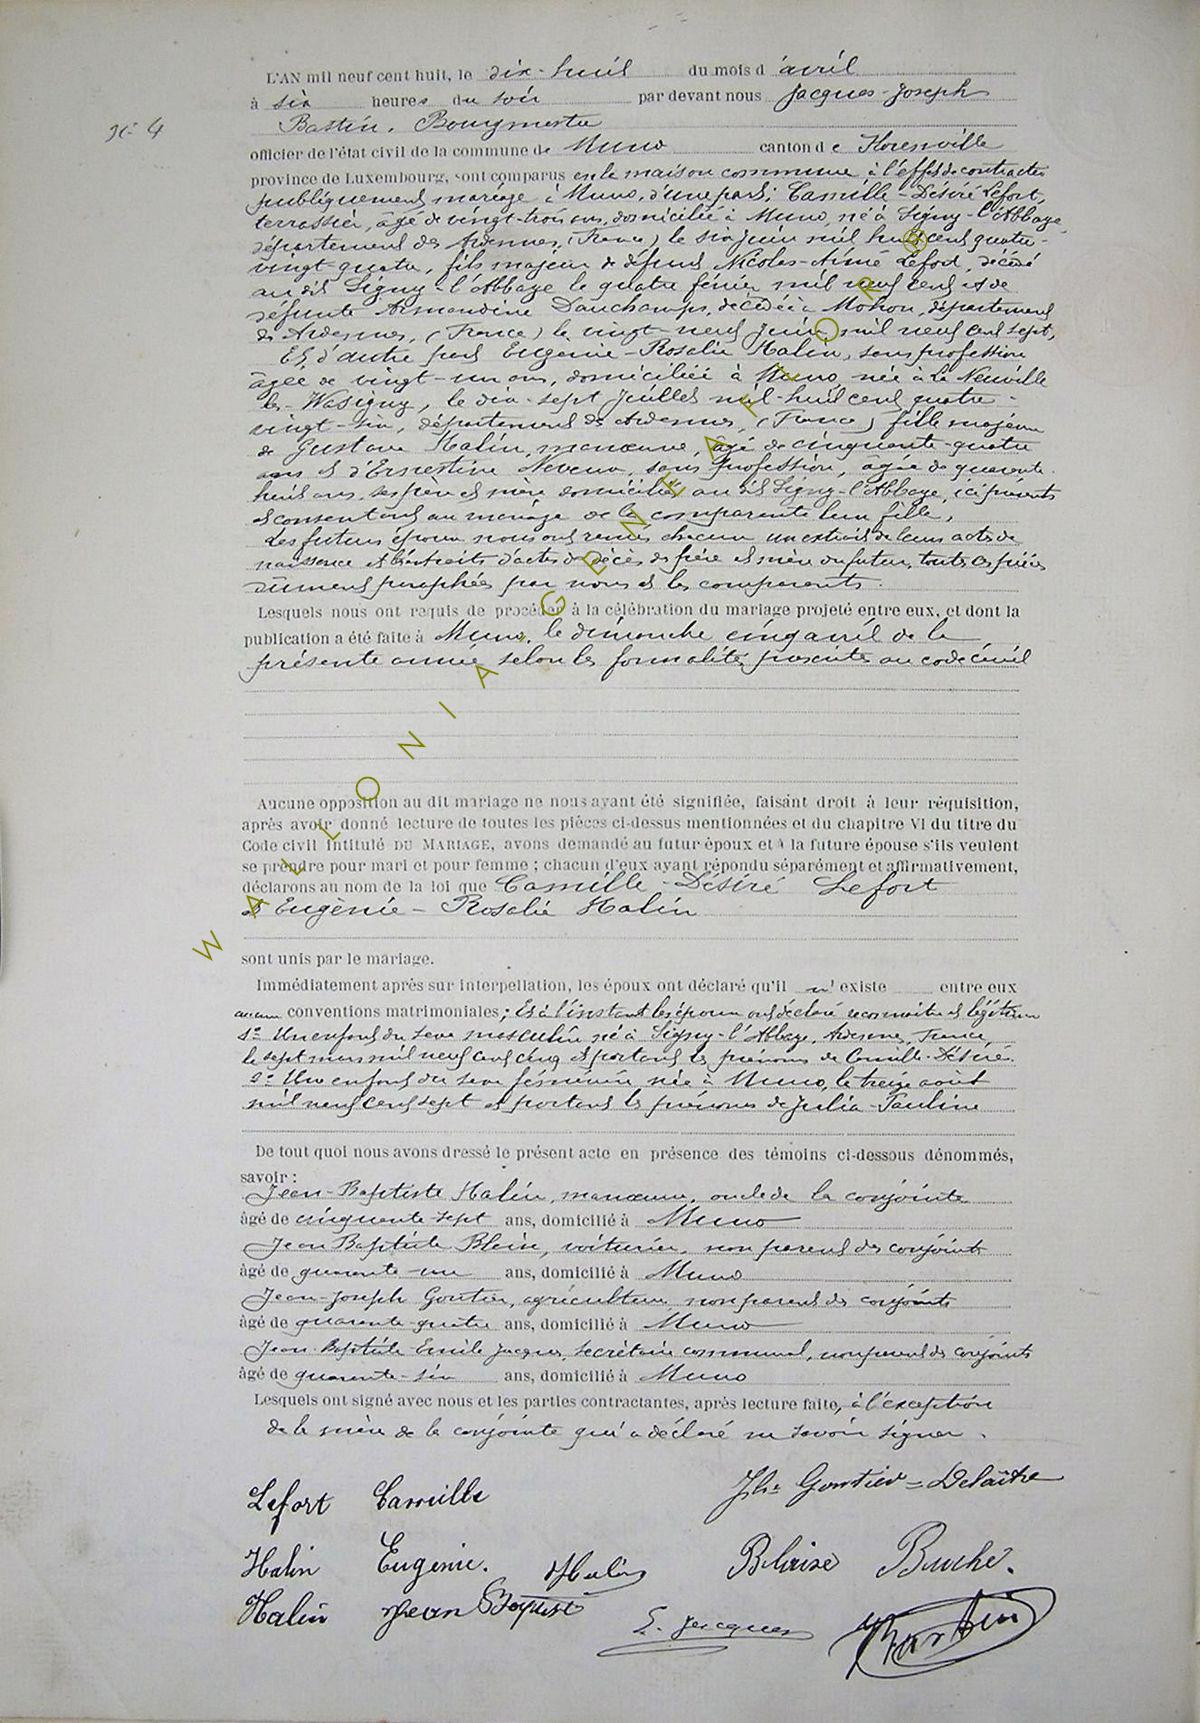 L'AN mil neuf cent huit, le dix-huit du mois d'avril
à six heures du soir par devant nous Jacques-Joseph
No 4
Bastin, Bourgmestre
officier de l'état civil de la commune de Muno canton de Florenville
province de Luxembourg, sont comparus en la maison commune à l'effet de contracter
publiquement mariage à Muno, d'une part; Camille-Désiré Lefort,
terrassier, âgé de vingt-trois ans, domicilié à Muno, né à Signy-l'Abbaye
département des Ardennes, (France) le six juin mil huit cent quatre-
vingt-quatre, fils majeur de défunt Nicolas-Aimé Lefort, décédé
au dit Signy-l'Abbaye le quatre février mil neuf cent et de
défunte Armandine Dauchamps, décédée à Mohon, département
des Ardennes, (France) le vingt-neuf juin mil neuf cent sept,
Et d'autre part Eugénie-Rosalie Halin, sans profession
âgée de vingt-un ans, domiciliée à Muno, née à La Neuville
les-Wasigny, le dix-sept juillet mil-huit cent quatre-
vingt-six, département des Ardennes, (France) fille majeure
de Gustave Halin, manœuvre, âgé de cinquante-quatre
ans et d'Ernestine Neveux, sans profession, âgée de quarante-
huit ans, ses père et mère domiciliés au dit Signy-l'Abbaye, ici présents
et consentant au mariage de la comparente leur fille,
Les futurs époux nous ont remis chacun un extrait de leurs actes de
naissance et les extraits d'actes de décès des père et mère du futur, toutes ces pièces
dûment paraphées par nous et les comparents.
Lesquels nous ont requis de procéder à la célébration du mariage projeté entre eux, et dont la
publication a été faite à Muno, le dimanche cinq avril de la
présente année selon les formalités prescrites au code civil
Aucune opposition au dit mariage ne nous ayant été signifiée, faisant droit à leur réquisition,
après avoir donné lecture de toutes les pièces ci-dessus mentionnées et du chapitre VI du titre du
Code civil intitulé DU MARIAGE, avons demandé au futur époux et à la future épouse s'ils veulent
se prendre pour mari et pour femme ; chacun d'eux ayant répondu séparément et affirmativement,
déclarons au nom de la loi que Camille-Désiré Lefort
et Eugènie-Rosalie Halin
sont unis par le mariage.
Immédiatement après sur interpellation, les époux ont déclaré qu'il n'existe entre eux
aucune conventions matrimoniales; Et à l'instant les époux ont déclaré reconnaître et légitimer
1o Un enfant du sexe masculin né à Signy-l'Abbaye, Ardennes, France,
le sept mars mil neuf cent cinq et portant les prénoms de Camille-Désiré
2o Un enfant du sexe féminin née à Muno, le treize août
mil neuf cent sept et portant les prénoms de Julia-Pauline
De tout quoi nous avons dressé le présent acte en présence des témoins ci-dessous dénommés,
savoir :
Jean-Baptiste Halin, manœuvre, oncle de la conjointe
âgé de cinquante-sept ans, domicilié à Muno
Jean Baptiste Blaise, voiturier, non parent des conjoints
âgé de quarante-un ans, domicilié à Muno
Jean-Joseph Gontier, agriculteur, non parent des conjoints
âgé de quarante-quatre ans, domicilié à Muno
Jean-Baptiste-Emile Jacques, secrétaire communal, non parent des conjoints
âgé de quarante-six ans, domicilié à Muno
Lesquels ont signé avec nous et les parties contractantes, après lecture faite, à l'exception
de la mère de la conjointe qui a déclaré ne savoir signer.
Lefort Camille Jh. Gontier=Delaître
Halin Eugénie. Halin Blaise Bauche.
Halin Jean Baptist E. Jacques Bastin
WALLONIA GEDNEAFLOR